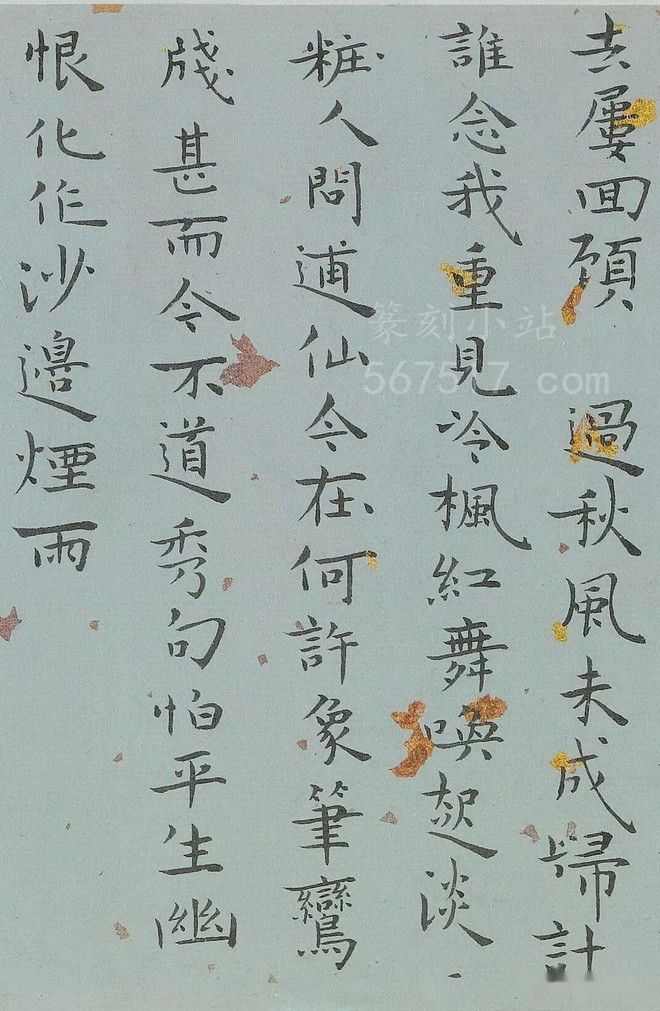 去屢回顧 過秋風未成歸計
誰念我重見冷楓紅舞喚起淡
粧人問逋仙今在何許象筆鸞
牋甚而今不道秀句怕平生幽
恨化作沙邊煙雨
篆刻小站
567517.com